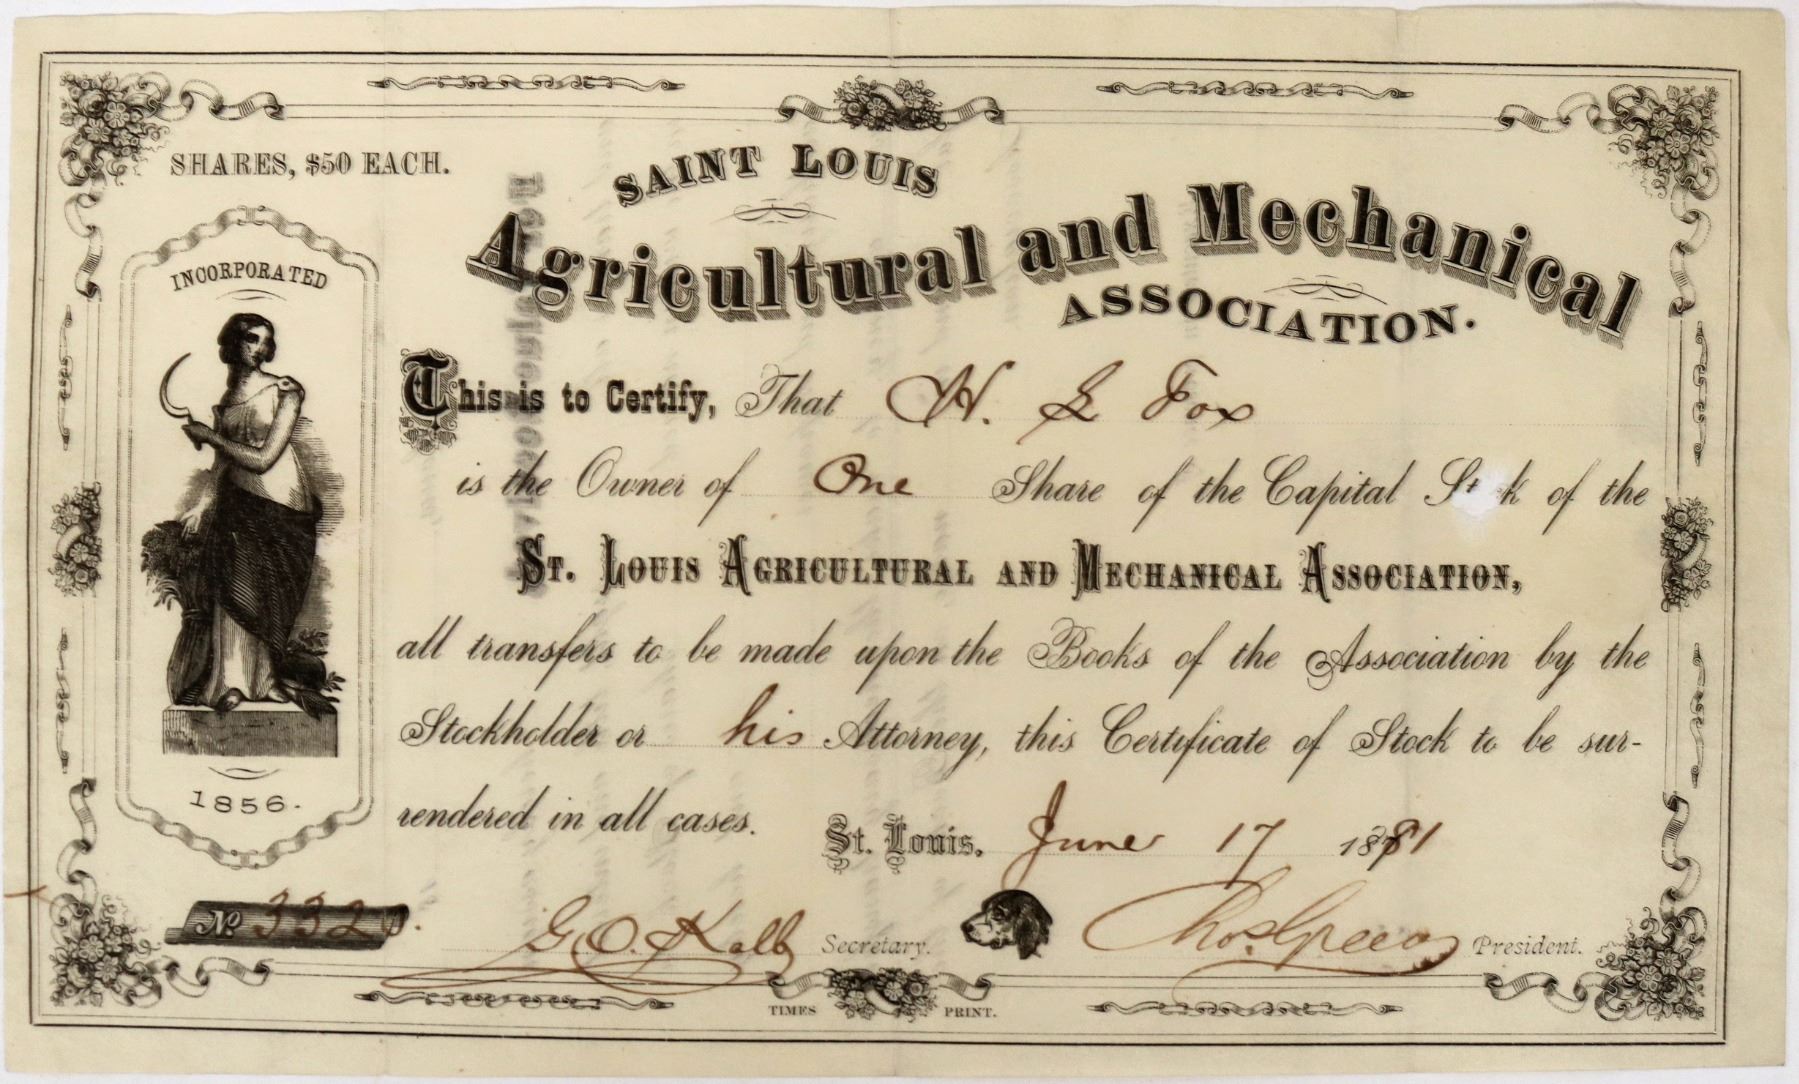 SHARES, $50 EACH.
SAINT LOUIS
Agricultural and Mechanical
ASSOCIATION.
INCORPORATED
This is to Certify, That H. L Fox
is the Owner of One Share of the Capital St k of the
ST. LOUIS AGRICULTURAL AND MECHANICAL ASSOCIATION,
all transfers to be made upon the Books of the Association by the
Stockholder or his Attorney, this Certificate of Stock to be sur-
rendered in all cases.
1856.
St. Louis, June 17 1881
No 332
G. O. Kalb Secretary.
President.
TIMES PRINT.